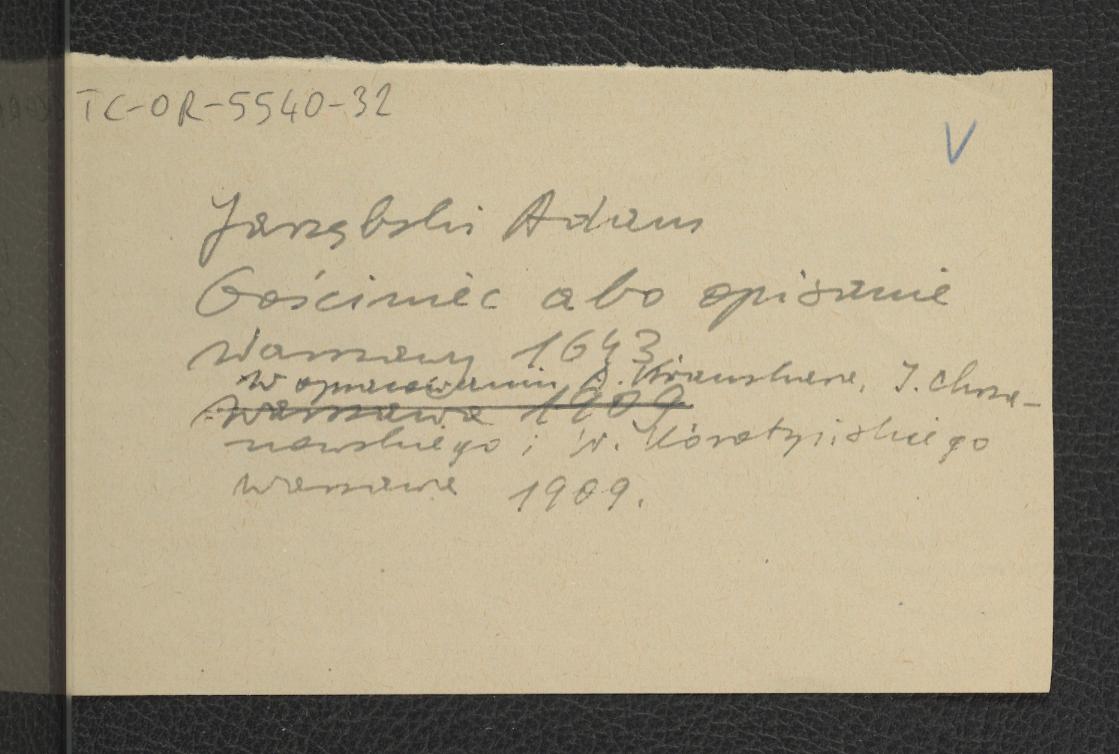 TC-OR-5540-32
V
Jarzębski Adam
Gościniec abo opisanie
Warszawy 1643
W opracowaniu A. Kraushara, I. Chrza-
Warszawa 1909
nowskiego i W. Korotyńskiego
Warszawa 1909.